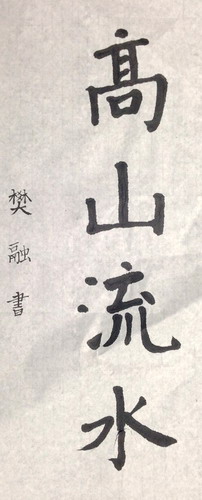 髙山流水
樊融書